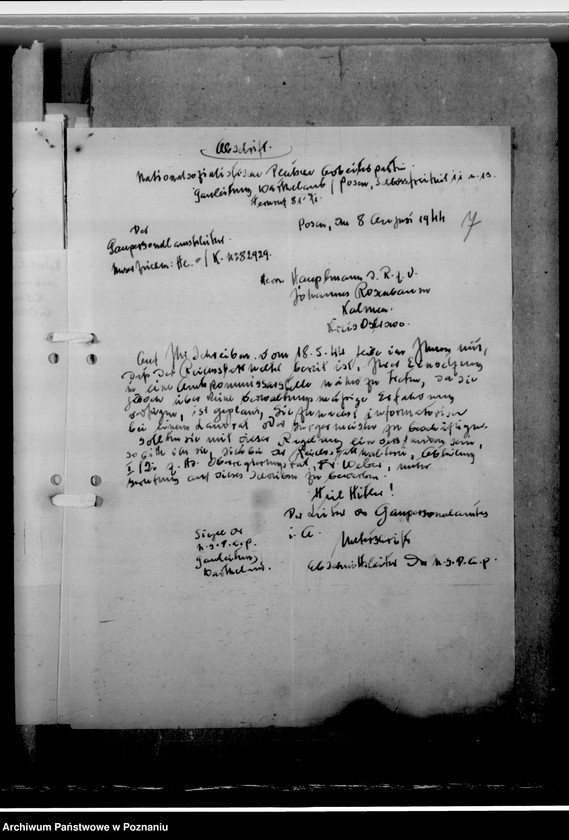 Abschrift.
Nationalsozialistische Deutsche Arbeiterpartei
Gauleitung Wartheland / Posen, Schlossfreiheit 11 u. 13
Fernruf
Posen, den 8 August 1944
7
Der
Gaupersonalamtsleiter.
Unser Zeichen: He. / K. N: 82929.
Herrn Hauptmann d. R. z. V.
Johannes Rosenbaum
Kalmen.
Kreis Ostrowo.
Auf Ihr Schreiben vom 18.5.44 teile ich Ihnen mit,
daß der Reichsstatthalter bereit ist, Ihrer Einsetzung
in eine Amtskommissarstelle näher zu treten, da Sie
jedoch über keine verwaltungsmäßige Erfahrung
verfügen, ist geplant, Sie zunächst informatorisch
bei einem Landrat oder Bürgermeister zu beschäftigen.
Sollten sie mit dieser Regelung einverstanden sein,
so bitte ich sie, sich bei der Reichsstatthalterei, Abteilung
I z. Hd. Oberregierungsrat, Dr Weber, unter
Berufung auf dieses Schreiben zu bewerben.
Heil Hitler!
Der Leiter des Gaupersonalamtes
i. A.
Unterschrift
Abschnittsleiter der N.S.D.A.P.
Siegel der
N.S.D.A.P.
Gauleitung
Wartheland.
Archiwum Państwowe w Poznaniu